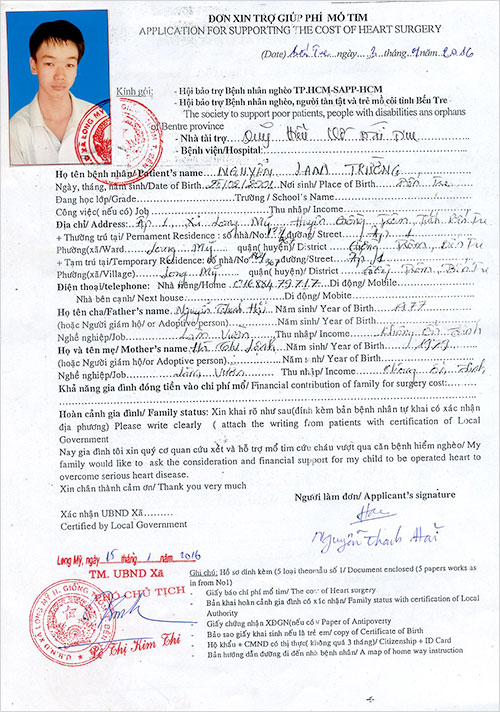 ĐƠN XIN TRỢ GIÚP PHÍ MỔ TIM
APPLICATION FOR SUPPORTING THE COST OF HEART SURGERY
(Date) Bến Tre ngày 3 tháng 2016
Kính gởi: - Hội bảo trợ Bệnh nhân nghèo TP.HCM-SAPP-HCM
- Hội bảo trợ Bệnh nhân nghèo, người tàn tật và trẻ mồ côi tỉnh Bến Tre
The society to support poor patients, people with disabilities ans orphans
of Bentre province
- Nhà tài trợ Quỹ Hiểu Về Trái Tim
- Bệnh viện/Hospital:
Họ tên bệnh nhân/ Patient's name NGUYỄN LAM TRƯỜNG
Ngày, tháng, năm sinh/Date of Birth 2001 Nơi sinh/ Place of Birth Bến Tre
Đang học lớp/Grade Trường / School's Name
Công việc( nếu có) Job Thu nhập/ Income
Địa chỉ/ Address: Ấp 1 Xã Long Mỹ Huyện Giồng Trôm Tỉnh Bến Tre
+ Thường trú tại/ Permament Residence : số nhà/No đường/Street Ấp 1
Phường(xã)/Ward Long Mỹ quận( huyện)/ District Giồng Trôm, Bến Tre
+ Tạm trú tại/Temporary Residence: số nhà/No đường/Street: Ấp 1
Phường(xã/Village) Long Mỹ quận( huyện)/ District Giồng Trôm, Bến Tre
Điện thoại/telephone: Nhà riêng/Home Di động/ Mobile
Nhà bên cạnh/ Next house Di động/ Mobile
Họ tên cha/Father's name Nguyễn Thanh Hải Năm sinh/ Year of Birth 1977
(hoặc Người giám hộ/ or Adoptive person) Năm sinh/ Year of Birth
Nghề nghiệp/Job Làm Vườn Thu nhập/ Income Không Ổn Định
Họ và tên mẹ/ Mother's name Năm sinh/ Year of Birth 1979
(hoặc Người giám hộ/or Adoptive person) Năm sinh/ Year of Birth
Nghề nghiệp/Job Làm Vườn Thu nhập/ Income Không Ổn Định
Khả năng gia đình đóng tiền vào chi phí mổ/ Financial contribution of family for surgery cost:
Hoàn cảnh gia đình/ Family status: Xin khai rõ như sau(đính kèm bản bệnh nhân tự khai có xác nhận
địa phương) Please write clearly ( attach the writing from patients with certification of Local
Government
Nay gia đình tôi xin quý cơ quan cứu xét và hỗ trợ mổ tim cứu cháu vượt qua căn bệnh hiểm nghèo/ My
family would like to ask the consideration and financial support for my child to be operated heart to
overcome serious heart disease.
Xin chân thành cảm ơn/ Thank you very much
Người làm đơn/ Applicant's signature
Xác nhận UBND Xã
Certified by Local Government
Nguyễn Thanh Hải
Long Mỹ, ngày 15 tháng 1 năm 2016
TM. UBND Xã
PHÓ CHỦ TỊCH
Lê Thị Kim Thi
Ghi chú: Hồ sơ đính kèm (5 loại theo mẫu số 1/ Document enclosed (5 papers works as
in from No1)
- Giấy báo chi phí mổ tim/ The cost of Heart surgery
- Bản khai hoàn cảnh gia đình có xác nhận/ Family status with certification of Local
Authority
- Giấy chứng nhận XĐGN(nếu có)/ Paper of Antipoverty
- Bảo sao giấy khai sinh nếu là trẻ em/ copy of Certificate of Birth
- Hộ khẩu + CMND có thị thực( không quá 3 tháng)/ Citizenship + ID Card
- Bản hướng dẫn đường đi đến nhà bệnh nhân/ A map of home way instruction